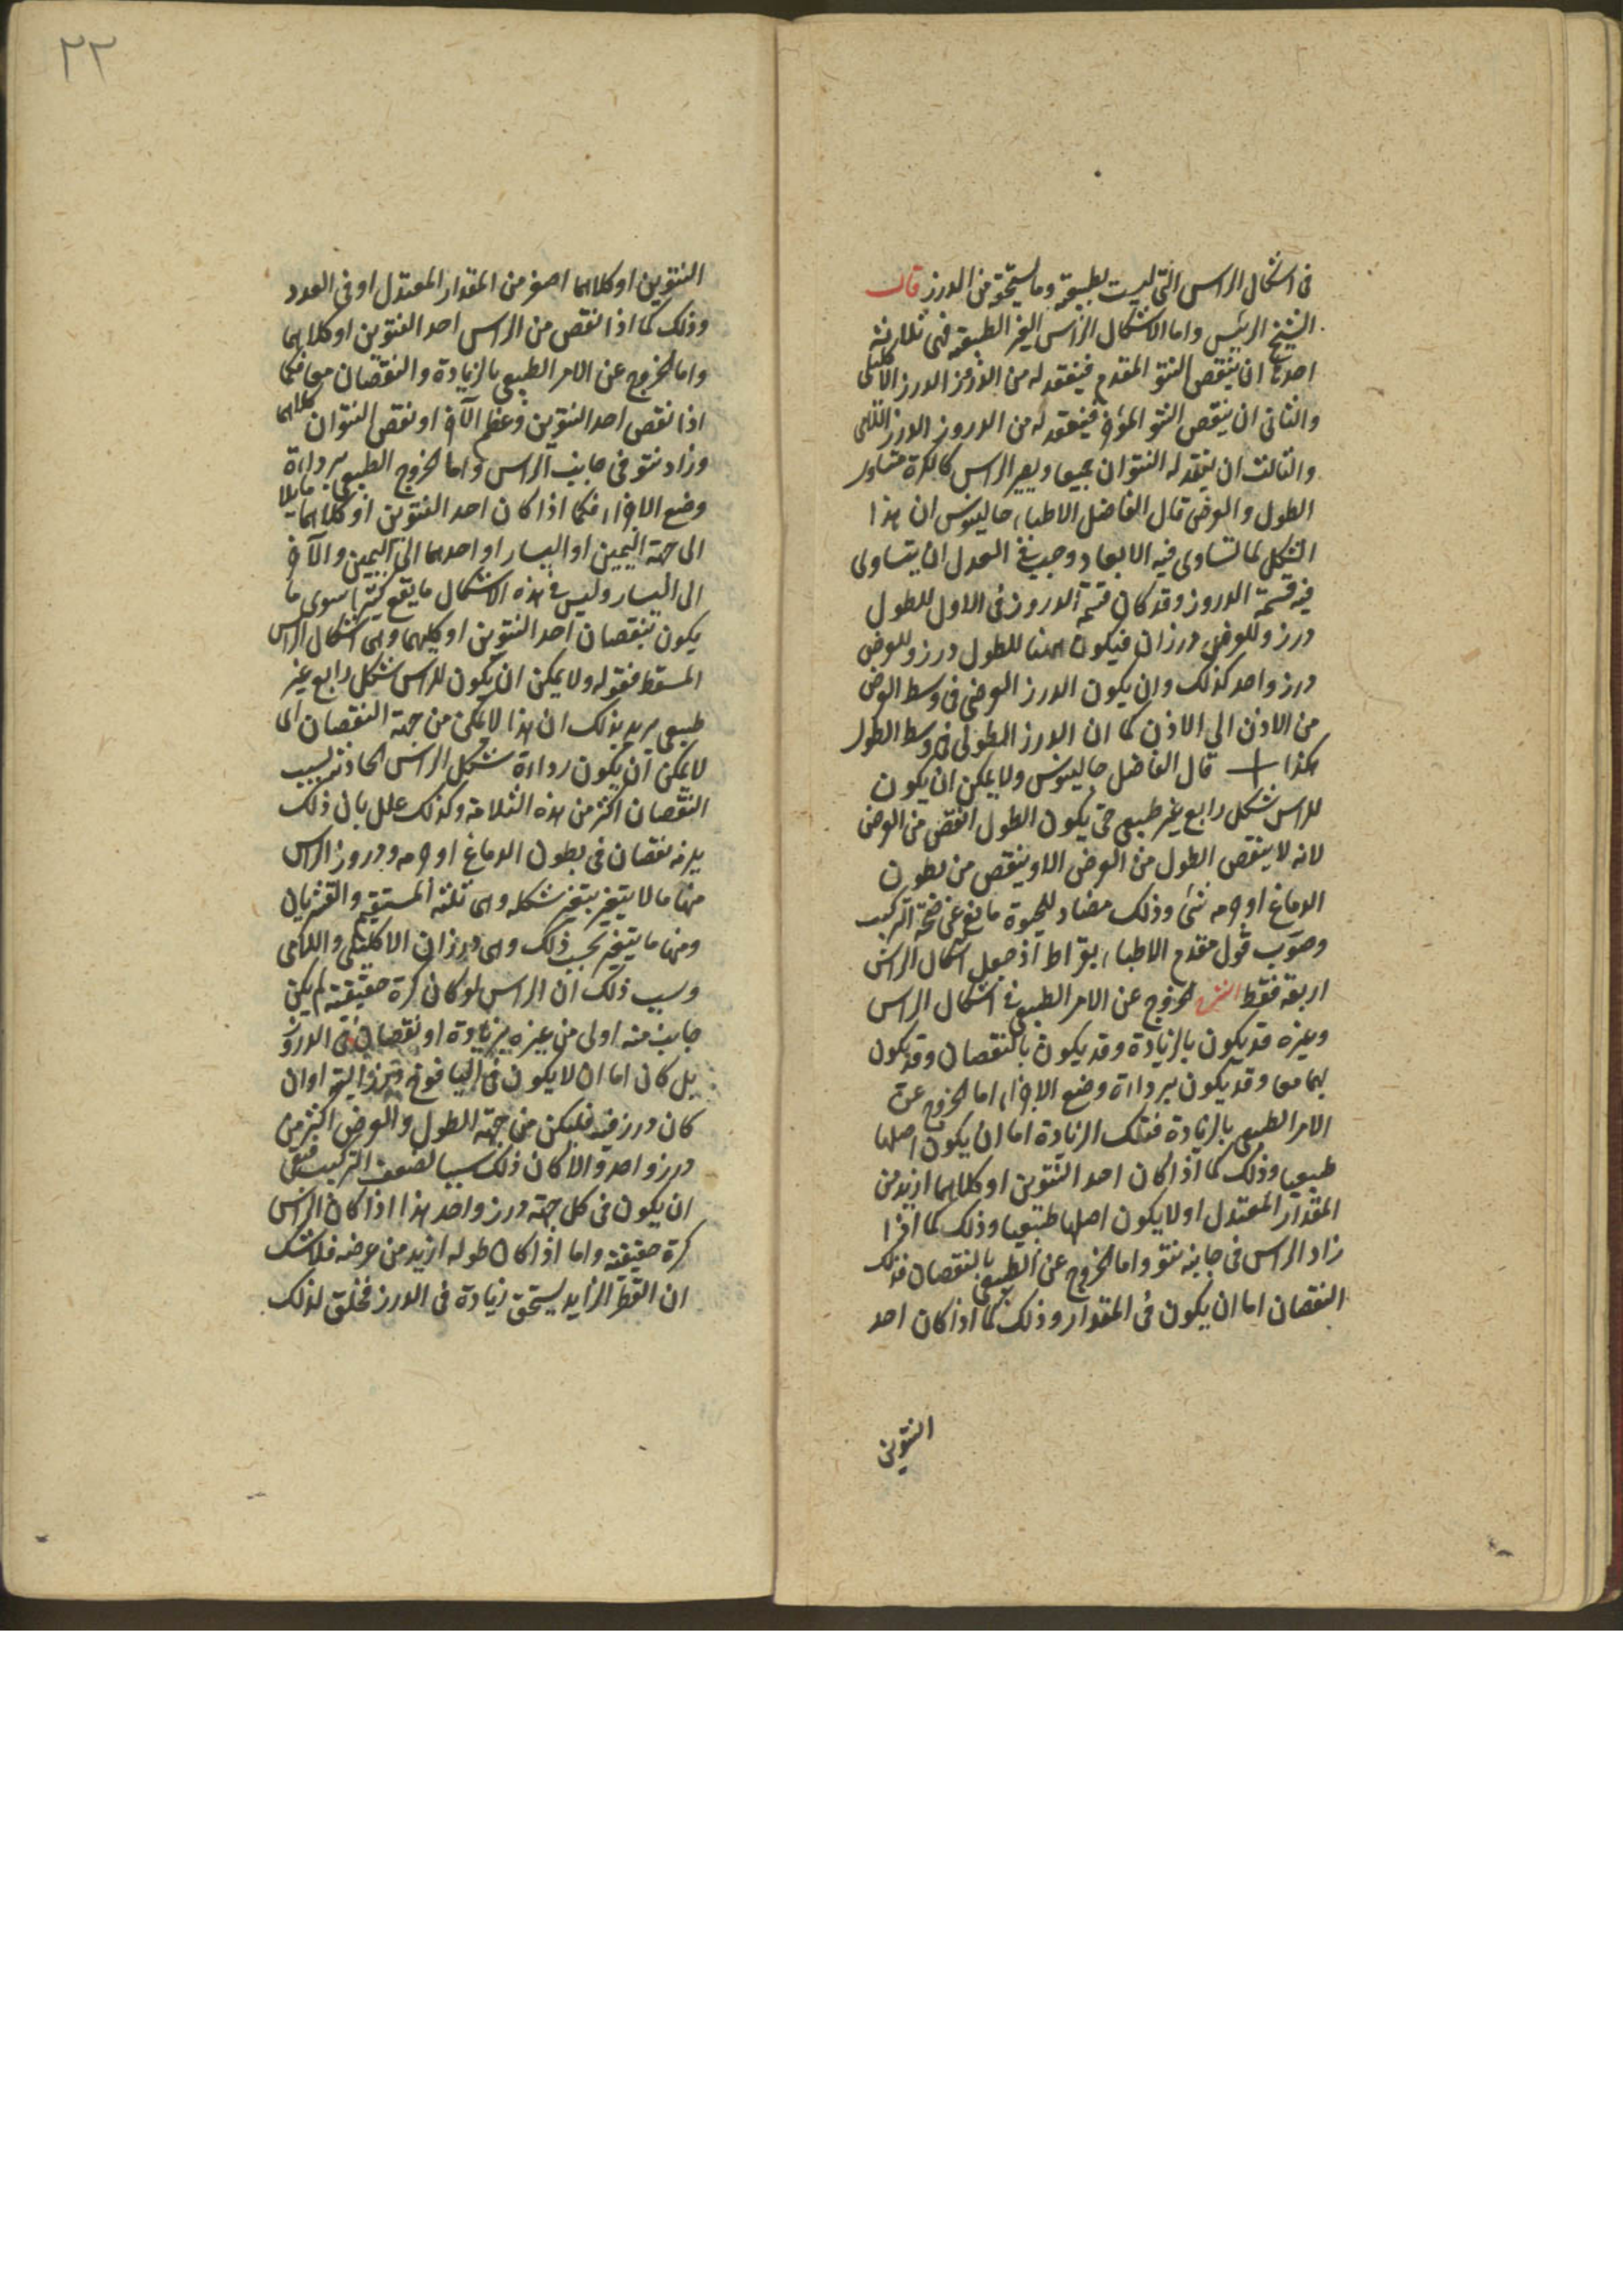 فى اشكال الراس التى ليست بطبيعية وما يستحقه من الدرز قال
الشيخ الرئيس واما الاشكال الراس الغير الطبيعية فهى ثلاثة
احدها ان ينقص النتو المقدم فيفقد له من الدروز الدرز الاكليلى
والثانى ان ينقص النتو المؤخر فيفقد له من الدروز الدرز اللامى
والثالث ان يفقد له النتوان جميعا ويصير الراس كالكرة متساوى
الطول والعرض قال الفاضل الاطباء جالينوس ان هذا
الشكل لما تساوى فيه الابعاد وجب فى العدل ان يتساوى
فيه قسمة الدروز وقد كان قسمة الدروز فى الاول للطول
درز وللعرض درزان فيكون ههنا للطول درز وللعرض
درز واحد كذلك وان يكون الدرز العرضى فى وسط العرض
من الاذن الى الاذن كما ان الدرز الطولى فى وسط الطول
هكذا + قال الفاضل جالينوس ولا يمكن ان يكون
للراس شكل رابع غير طبيعى حتى يكون الطول انقص من العرض
لانه لا ينقص الطول من العرض الا وينقص من بطون
الدماغ او جرمه شئ وذلك مضاد للحيوة مانع عن صحة التركيب
وصوب قول مقدم الاطباء بقراط اذ جعل اشكال الراس
اربعة فقط الشرح الخروج عن الامر الطبيعى فى اشكال الراس
وغيره قد يكون بالزيادة وقد يكون بالنقصان وقد يكون
بهما معا وقد يكون برداءة وضع الاجزاء اما الخروج عن
الامر الطبيعى بالزيادة فتلك الزيادة اما ان يكون اصلها
طبيعيا وذلك كما اذا كان احد النتوين او كلاهما ازيد من
المقدار المعتدل او لا يكون اصلها طبيعيا وذلك كما اذا
زاد الراس فى جانبه نتو واما الخروج عن الطبيعى بالنقصان فذلك
النقصان اما ان يكون فى المقدار وذلك كما اذا كان احد
النتوين
٢٢
النتوين او كلاهما اصغر من المقدار المعتدل او فى العدد
وذلك كما اذا نقص من الراس احد النتوين او كلاهما
واما الخروج عن الامر الطبيعى بالزيادة والنقصان معا فكما
اذا نقص احد النتوين وعظم الآخر او نقص النتوان كلاهما
وزاد نتو فى جانب الراس واما الخروج الطبيعى برداءة
وضع الاجزاء فكما اذا كان احد النتوين او كلاهما مايلا
الى جهة اليمين او اليسار او احدهما الى اليمين والآخر
الى اليسار وليس فى هذه الاشكال ما يقع كثيرا سوى ما
يكون بنقصان احد النتوين او كليهما وهى اشكال الراس
المسقط فقوله ولا يمكن ان يكون للراس شكل رابع غير
طبيعى يريد بذلك ان هذا لا يمكن من جهة النقصان اى
لا يمكن ان يكون رداءة شكل الراس الحادثة بسبب
النقصان اكثر من هذه الثلاثة وكذلك علل بان ذلك
يلزمه نقصان فى بطون الدماغ او جرمه ودروز الراس
منها ما لا يتغير بتغير شكله وهى ثلثة المستقيم والقشريان
ومنها ما يتغير بحسب ذلك وهى درزان الاكليلى واللامى
وسبب ذلك ان الراس لو كان كرة حقيقية لم يكن
جانب منه اولى من غيره بزيادة او نقصان فى الدروز
بل كان اما ان لا يكون فى اليافوخ درز البتة او ان
كان درز فيه فليكن من جهة الطول والعرض اكثر من
درز واحد والا كان ذلك سببا لضعف التركيب فبقى
ان يكون فى كل جهة درز واحد هذا اذا كان الراس
كرة حقيقية واما اذا كان طوله ازيد من عرضه فلا شك
ان القطر الزايد يستحق زيادة فى الدرز فخلق لذلك